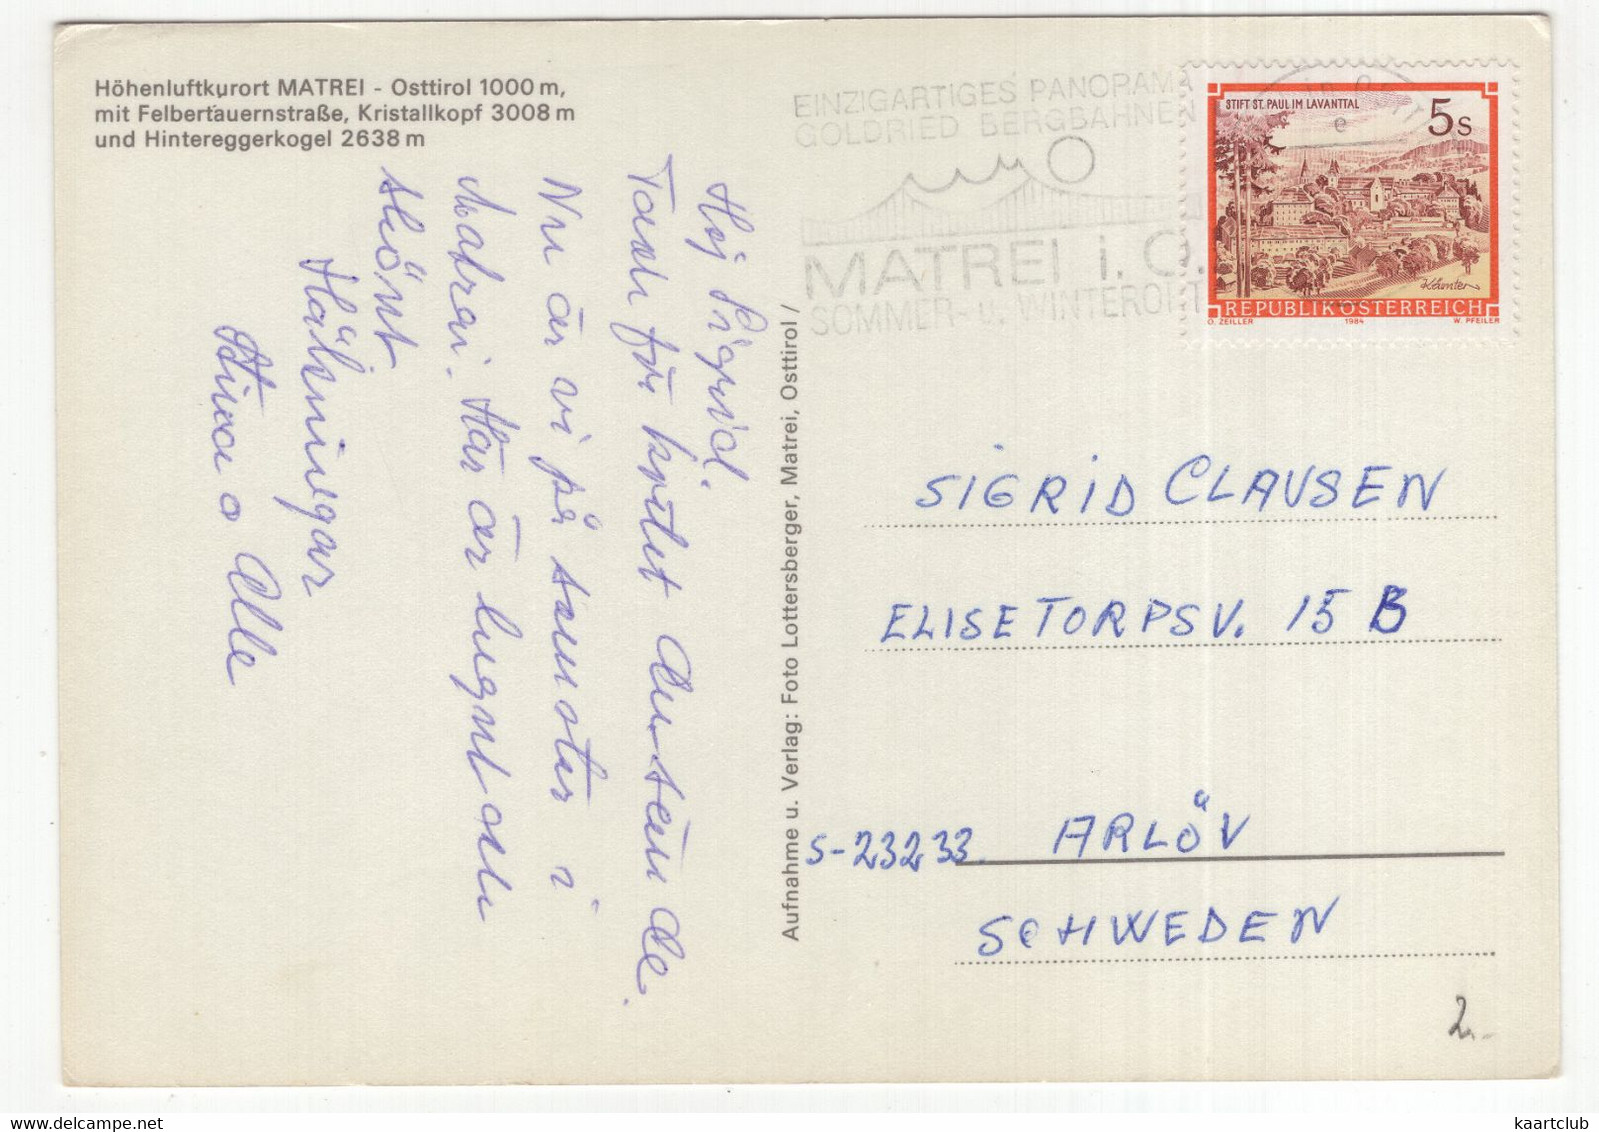 Höhenluftkurort MATREI - Osttirol 1000 m,
mit Felbertauernstraße, Kristallkopf 3008 m
und Hintereggerkogel 2638 m
EINZIGARTIGES PANORAMA
GOLDRIED BERGBAHNEN
MATREI i. O.
SOMMER- u. WINTERORT
STIFT ST. PAUL IM LAVANTTAL
5 S
REPUBLIK ÖSTERREICH
O. ZEILLER 1984 W. PFEILER
Hej Sigrid.
Tack för kortet
Nu är vi på semester i
Matrai. Här är lugnt och
skönt
Hälsningar
Stina o Olle
Aufnahme u. Verlag: Foto Lottersberger, Matrei, Osttirol /
SIGRID CLAUSEN
ELISETORPSV. 15 B
S-23233 ARLÖV
SCHWEDEN
2.-
kaartclub